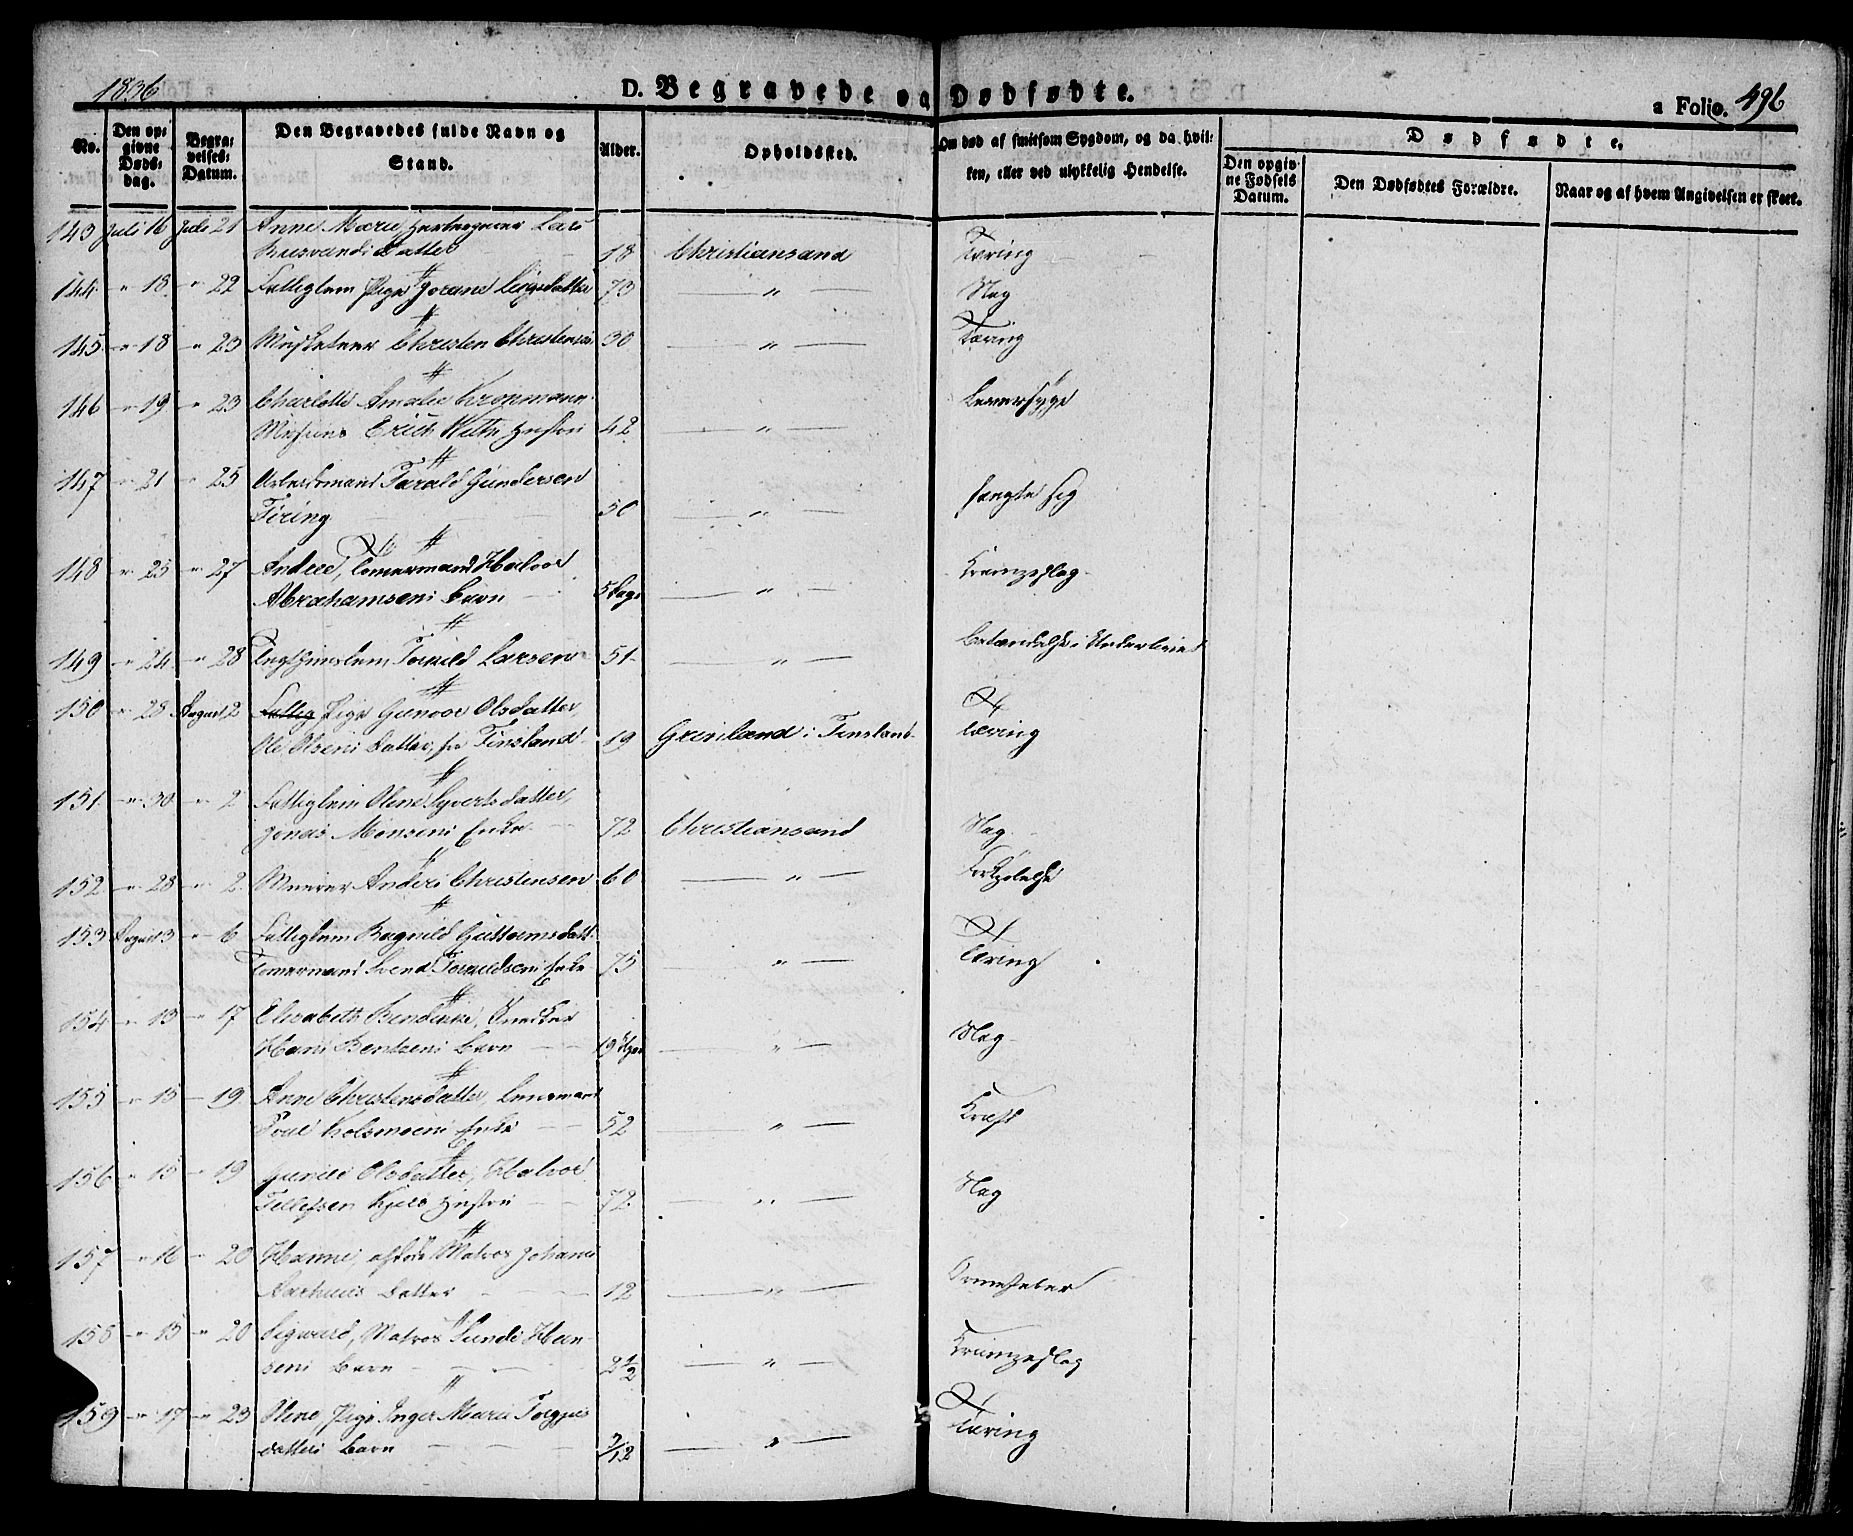 1836
D. Begravede og Dødfødte.
a Folio. 496
No.
Den opgivne Døds-dag.
Begravelses-Datum.
Den Begravedes fulde Navn og Stand.
Alder.
Opholdssted.
Om død af smitsom Sygdom, og da hvilken, eller ved ulykkelig Hendelse.
Dødfødte.
Den opgivne Fødsels Datum.
Den Dødfødtes Forældre.
Naar og af hvem Angivelsen er skeet.
143 Juli 16 Juli 21 Anne Marie, Lars
Datter 18 Christiansand Tæring
144 " 18 " 22 Fattiglem Pige Jorand 73 " Slag
145 " 18 " 23 Musketeer Christen Christensen 30 " Tæring
146 " 19 " 23 Charlotte Amalie Kropmann
Erich Hustru 42 " Leversyge
147 " 21 " 25 Arbeidsmand Tarald Gundersen
Tiring 50 " hængte sig
148 " 25 " 27 Andree, Tømermand Halvor
Abrahamsens Barn 5 Dage " Krampeslag
149 " 24 " 28 Tugthuuslem Larsen 51 " Betændelse i Underlivet
150 " 28 August 2 Fattig Pige Gunvor Olsdatter,
Ole Olsens Datter, fra Finsland 19 i Finsland Tæring
151 " 30 " 2 Fattiglem Olene Syvertsdatter,
Jonas Monsens Enke 72 Christiansand Slag
152 " 28 " 2 Muurer Anders Christensen 60 " Forkjølelse
153 August 3 " 6 Fattiglem Ragnild Guttormsdatt:
Tømermand Svend Enke 75 " Tæring
154 " 13 " 17 Elisabeth Bendikke, Snedker
Hans Bentsens Barn 19 Uger " Slag
155 " 15 " 19 Anne Christensdatter, Lensmand
Enke 52 " Kræft
156 " 15 " 19 Gunild Olsdatter, Halvor
Tellefsen Hustru 72 " Slag
157 " 16 " 20 Hanne, Matros Johannes
Datter 12 " Ormefeber
158 " 15 " 20 Sigvard, Matros Sunde Han-
sens Barn 2 1/2 " Krampeslag
159 " 17 " 23 Olene, Pige Inger Marie Torgjus
datters Barn 7/12 " Tæring